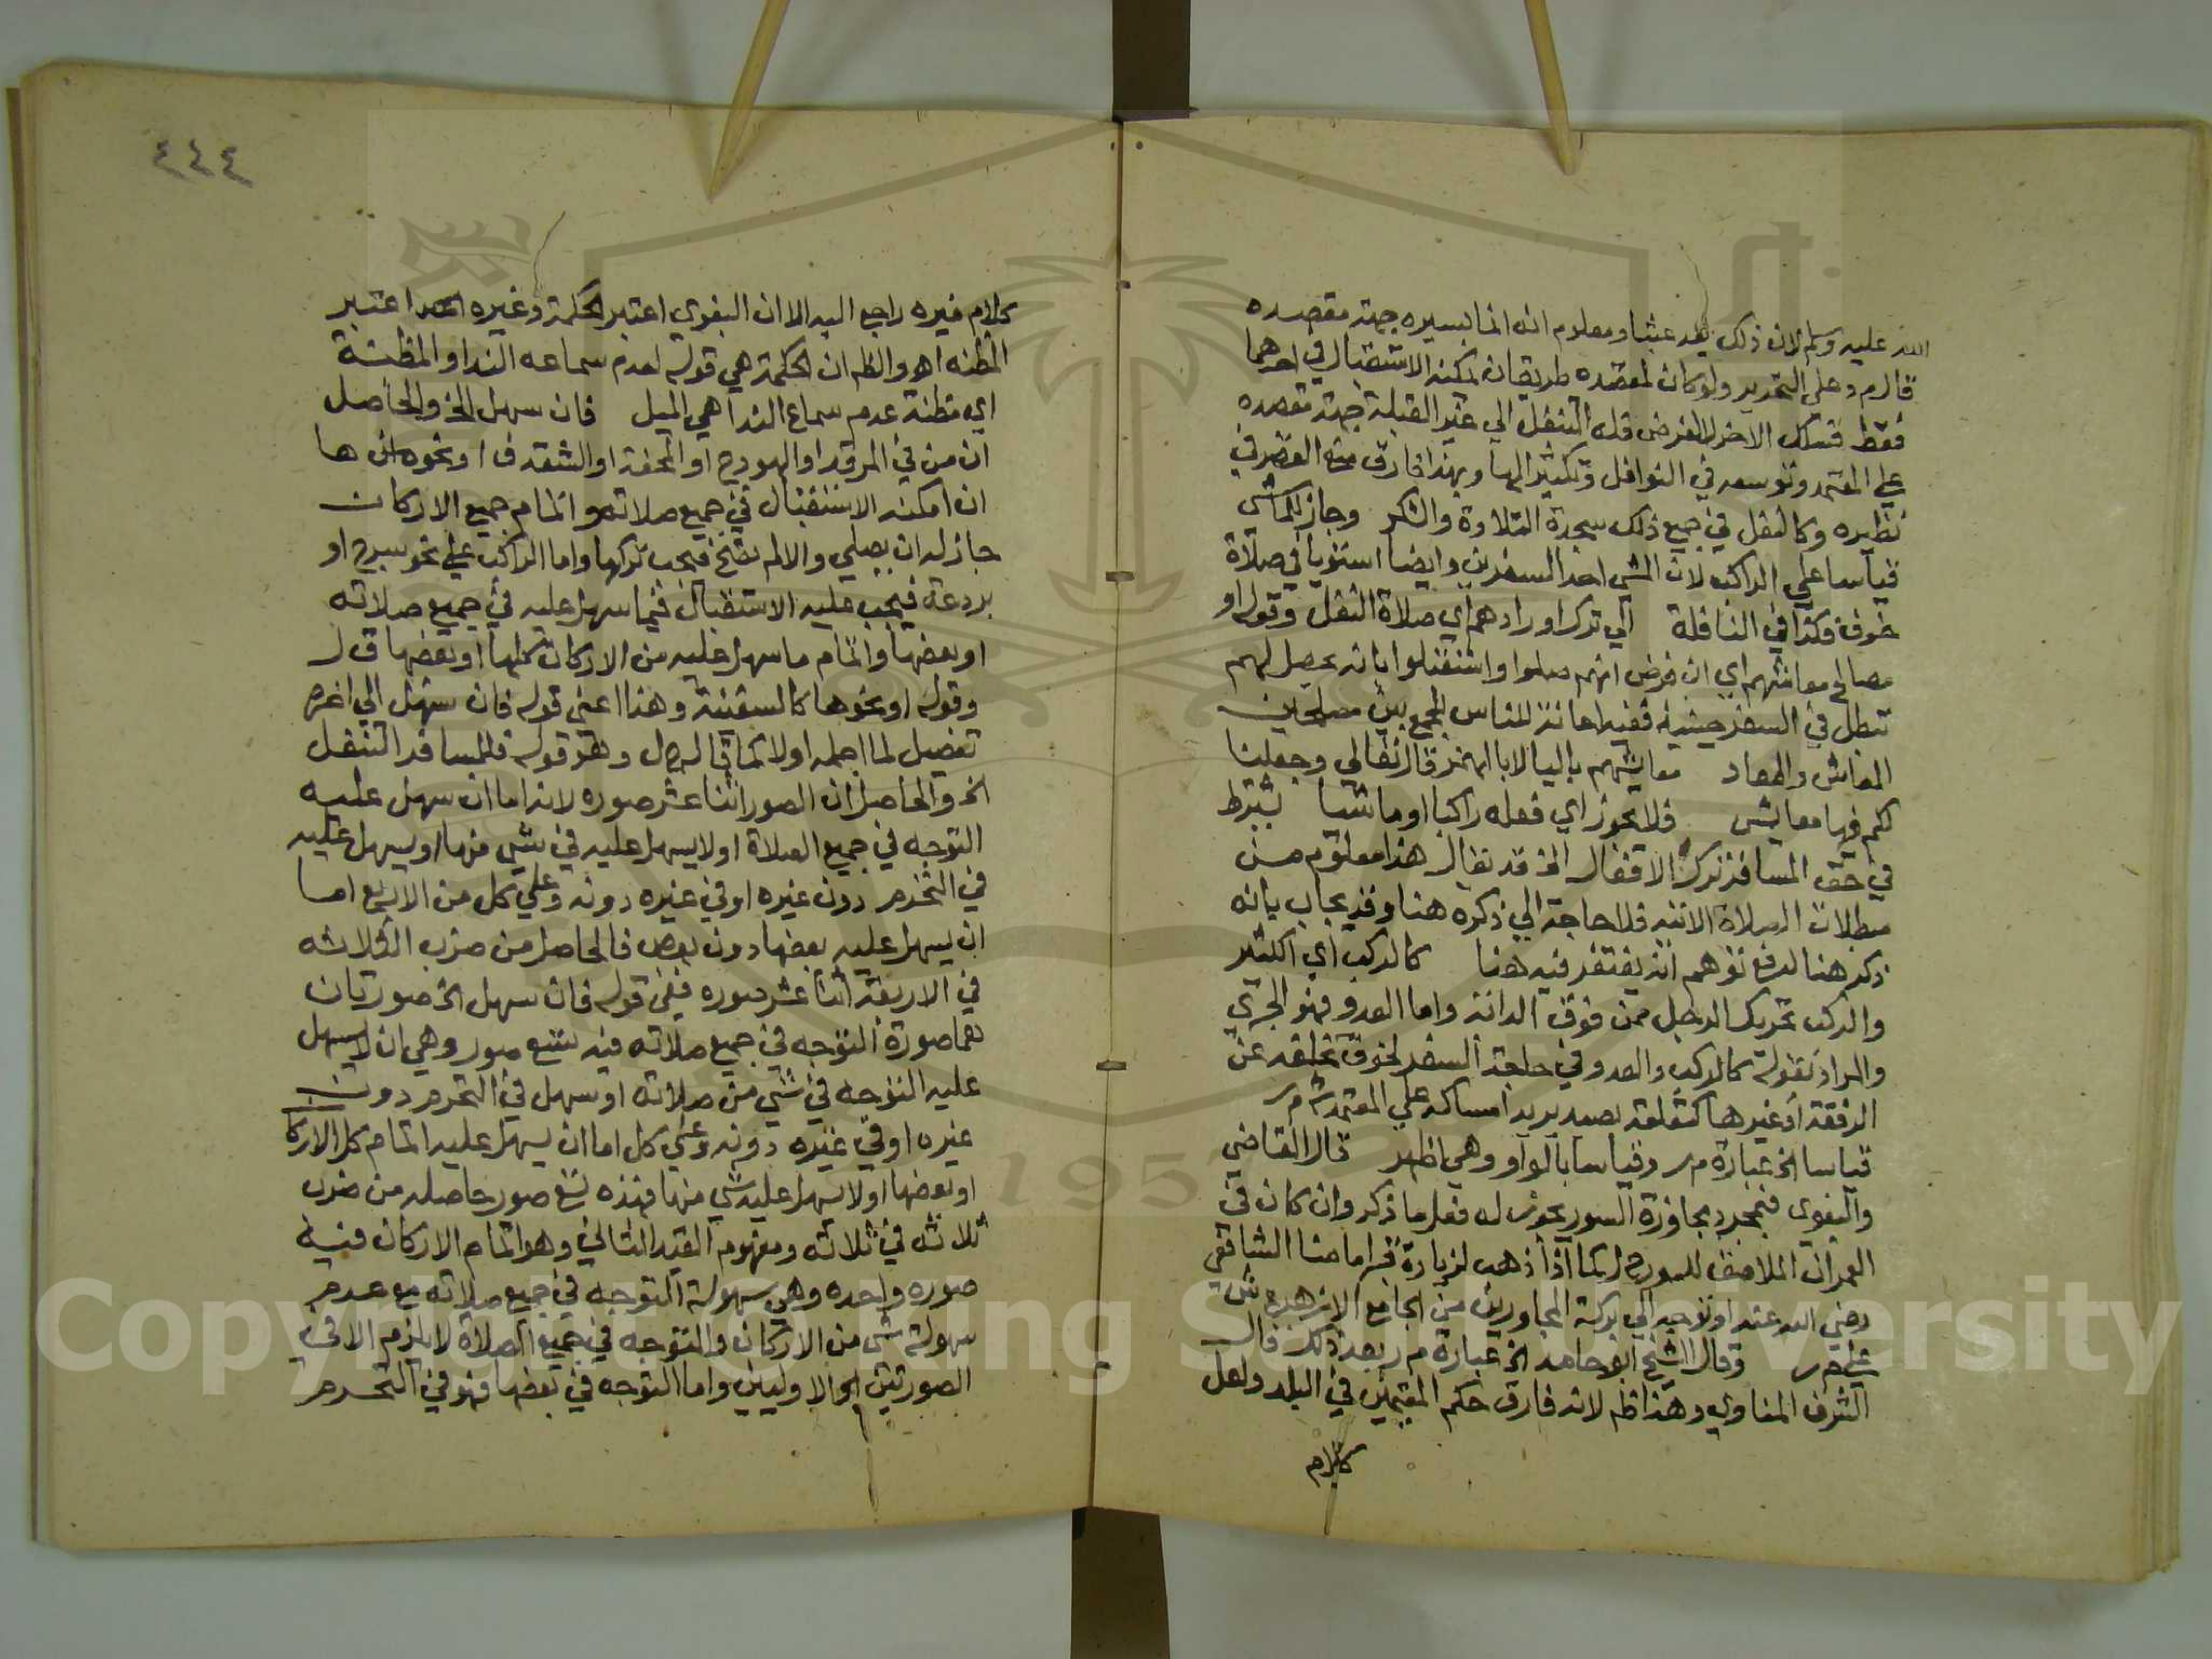 الله عليه وسلم لان ذلك يعد عبثا ومعلوم انه انما يسيره جهة مقصده
قال م وعلى التحرير ولو كان لمقصده طريقان يمكنه الاستقبال في احدهما
فقط فسلك الاخر لا لغرض فله التنفل الي غير القبلة جهة مقصده
علي المعتمد وتوسعه في النوافل وتكثيرالها وبهذا فارق منع القصر في
نظيره وكالنفل في جميع ذلك سجدة التلاوة والشكر وجاز للماشي
قياسا علي الراكب لان المشي احد السفرين وايضا استويا في صلاة
خوف فكذا في النافلة الي ترك اورادهم اي صلاة النفل وقوله او
مصالح معاشهم اي ان فرض انهم صلوا واشتغلوا بانه يحصل لهم
تبطل في السفر حينئذ ففيه اعانة للناس للجمع بين مصلحتين
المعاش والمعاد معايشهم باليا لا بالهمز قال تعالي وجعلنا
لكم فيها معايش فلا يجوز اي فعله راكبا او ماشيا يشترط
في حق المسافر ترك الافعال الخ قد يقال هذا معلوم من
مبطلات الصلاة الاتيه فلا حاجة الي ذكره هنا وقد يجاب بانه
ذكر هنا لدفع توهم انه يغتفر فيه هنا كالركب اي الكثير
والركب تحريك الرجل ممن فوق الدابة واما العدو فهو الجري
والمراد بقوله كالركب والعدو في حاجة السفر لخوف تخلفه عن
الرفقة او غيرها كتعلقه بصيد يريد امساكه علي المعتمد ش م ر
قياسا الخ عبارة م ر وقياسا بالواو وهي اظهر قال القاضي
والبغوي فبمجرد مجاوزة السور يجوز له فعل ما ذكر وان كان في
العمران الملاصق للسور ح ل كما اذا ذهب لزيارة قبر امامنا الشافعي
رضي الله عنه او توجه الي بركة المجاورين من الجامع الازهر ع ش
علي م ر وقال الشيخ ابو حامد الخ عبارة م ر بعد ذلك قال
الشرف المناوي وهذا ظ لانه فارق حكم المقيمين في البلد ولعل
كلام
٤٤٤
كلام غيره راجع اليه الا ان البغوي اعتبر الحكمة وغيره اعتبر
المظنه اه والظ ان الحكمة هي قوله لعدم سماعه الندا والمظنة
اي مظنة عدم سماع الندا هي الميل فان سهل الخ والحاصل
ان من في المرقد او الهودج او المحفة او الشقدف او نحوها
ان امكنه الاستقبال في جميع صلاته واتمام جميع الاركان
جاز له ان يصلي والا لم تصح فيجب تركها واما الراكب علي نحو سرج او
بردعة فيجب عليه الاستقبال فيما سهل عليه في جميع صلاته
او بعضها واتمام ما سهل عليه من الاركان كلها او بعضها ق ل
وقوله او نحوها كالسفينة وهذا اعني قوله فان سهل الي اخره
تفصيل لما اجمله اولا كما قاله ح ل وهو قوله فللمسافر التنفل
الخ والحاصل ان الصور اثنا عشر صوره لانه اما ان سهل عليه
التوجه في جميع الصلاة او لا يسهل عليه في شي منها او يسهل عليه
في التحرم دون غيره او في غيره دونه وعلي كل من الاربع اما
ان يسهل عليه بعضها دون بعض فالحاصل من ضرب الثلاثه
في الاربعة اثنا عشر صوره ففي قوله فان سهل الخ صورتان
هما صورة التوجه في جميع صلاته فيه تسع صور وهي ان لا يسهل
عليه التوجه في شي من صلاته او سهل في التحرم دون
غيره او في غيره دونه وعلي كل اما ان يسهل عليه اتمام كل الاركا
او بعضها او لا يسهل عليه شي منها فهذه تسع صور حاصله من ضرب
ثلاثه في ثلاثه ومفهوم القيد الثاني وهو اتمام الاركان فيه
صوره واحده وهي سهولة التوجه في جميع صلاته مع عدم
سهولة شي من الاركان والتوجه في جميع الصلاة لا يلزم الا في
الصورتين الاوليين واما التوجه في بعضها فهو في التحرم
Copyright © King Saud University
1957